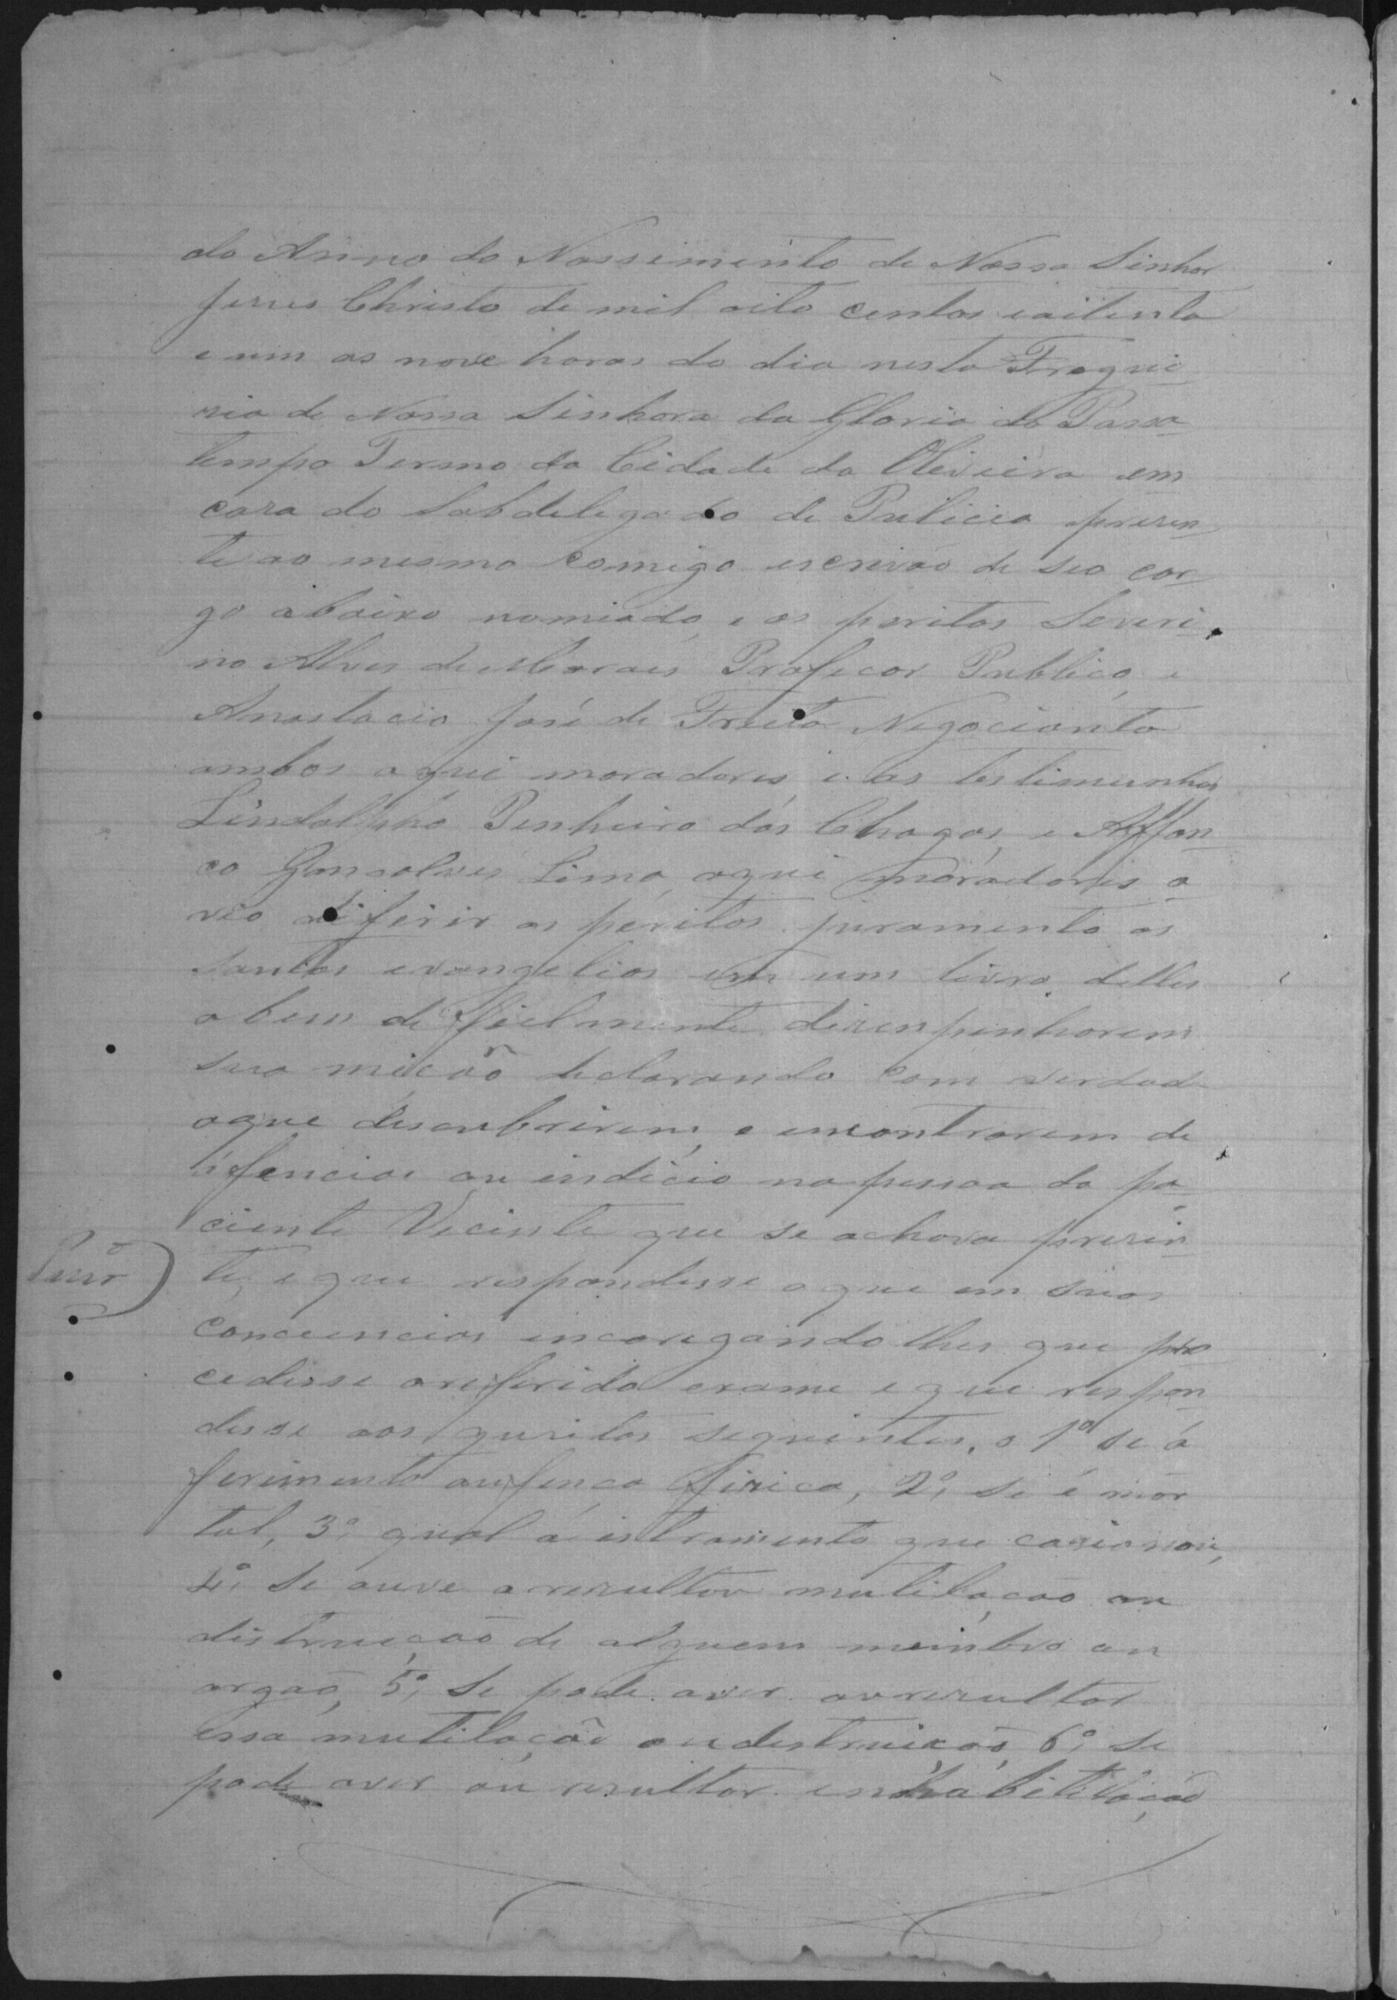 do Anno do Nassimento de Nosso Sinhor
Jesus Christo de mil oito centos e oitenta
e um as nove horas do dia nesta Fregui
sia de Nossa Sinhora da Gloria do Passa
tempo Termo da Cidade da Oliveira em
casa do Sobdelegado de Pulicia presen
te ao mesmo comigo escrivão de seo car
go abaixo nomiado, e os peritos Severi
no Alves de Morais Profeçor Publico, e
Anastacio José de Freita Negocianta
ambos aqui moradores, e as testimunhas
Lindolpho Penheiro das Chagas, e Affon
ço Gonsalves Lima, aqui moradores o
diferir os peritos juramento os
santos evangelios em um livro delles
a bem de fielmente disenpenharem
sua mição declarando com verdade
oque descubrirem, e encontrarem de
ifencias ou indicio na pessoa do pa
ciente Vecente que se achava presen
te, e que respondesse o que em suas
conciencias encaregandolhes que pro
cedisse oreferido exame e que respon
desse aos quesitos seguintes, o 1º se á
ferimento oufença fizica, 2º, se é mor
tal, 3º, qual o instramento que cazionou,
4º, se ouve o rezultou mutilação ou
distruição de alguem meinbro ou
orgão, 5º, se pode aver ourezultar
essa mutilação oudestruição, 6º, se
pode aver ou rezultar enhabilitação